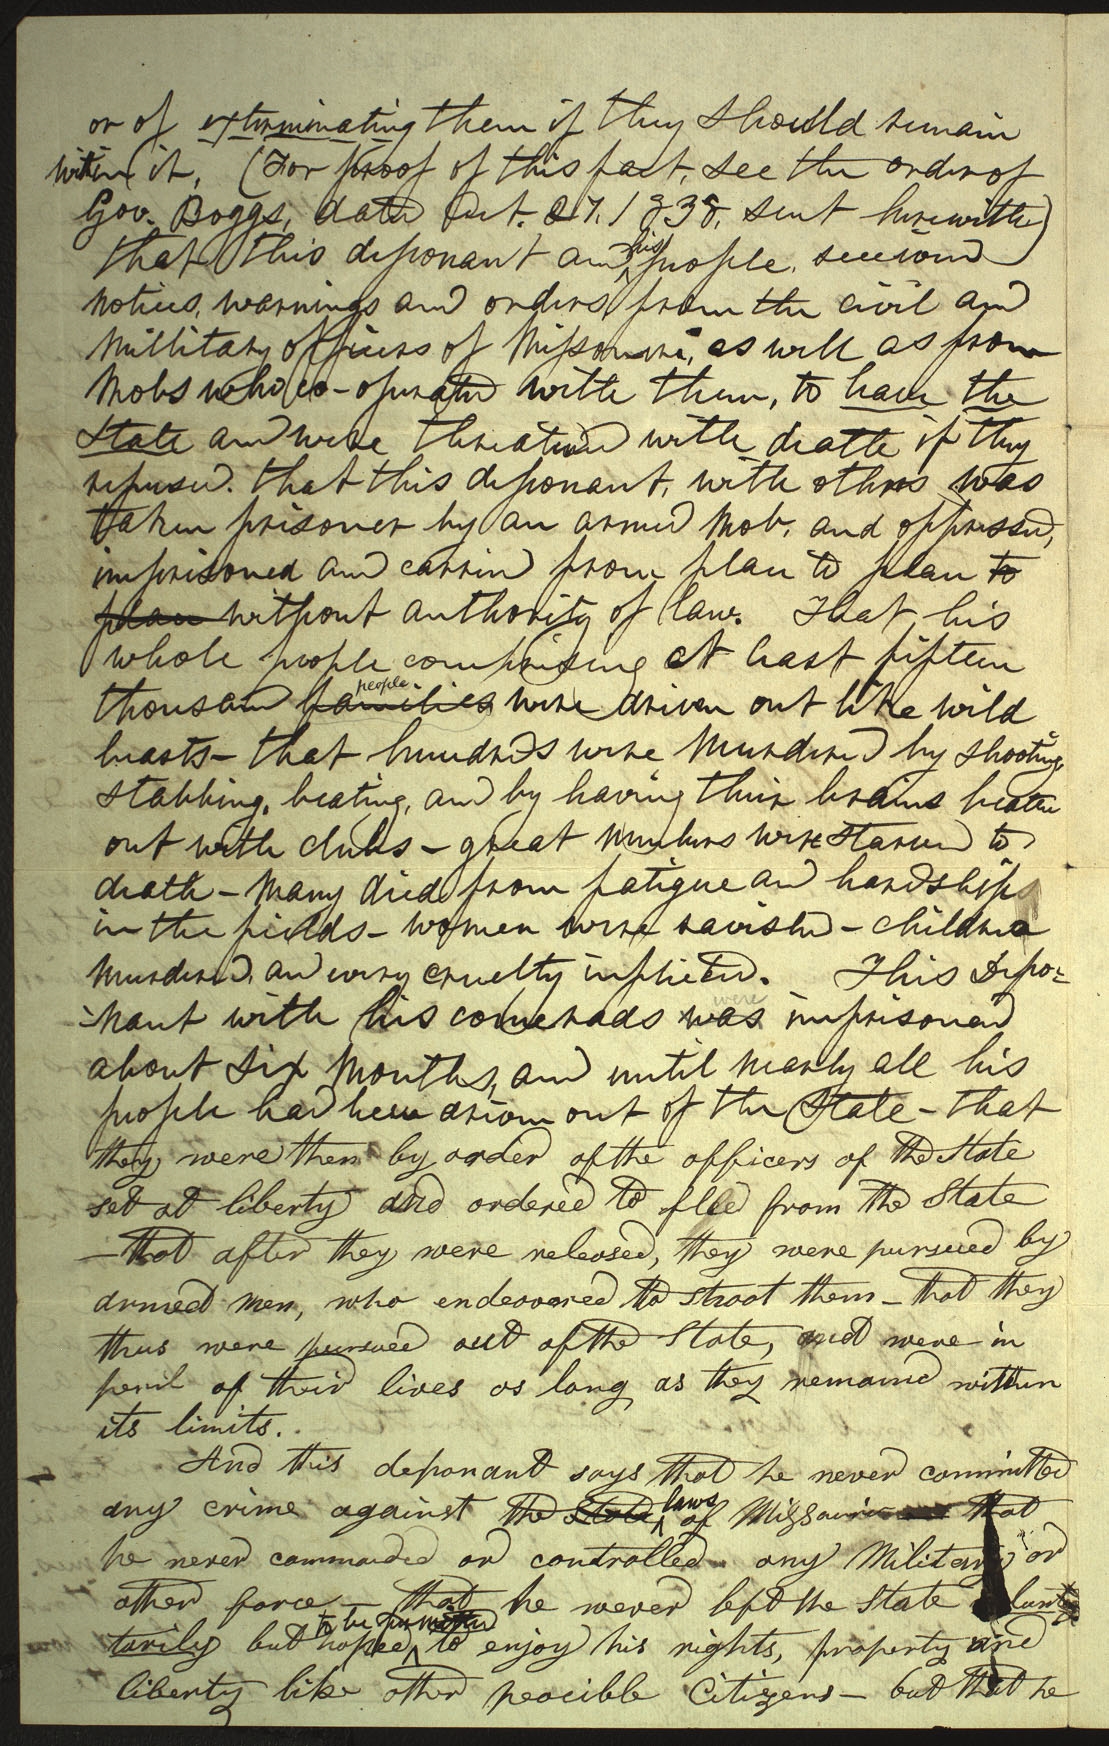 or of exterminating them if they should remain
within it. (For proof of this fact, see the order of
Gov. Boggs, dated Oct. 27. 1838, sent herewith)
that this deponant and his people, received
notices, warnings and orders from the civil and
Millitary officers of Missouri, as well as from
Mobs who co-operated with them, to leave the
State and were threatened with death if they
refused. that this deponant, with others was
taken prisoner by an armed Mob, and oppressed,
imprisoned and carried from place to place to
place without authority of law. That his
whole people comprising at least fifteen
thousand families people were driven out like wild
beasts – that hundreds were Murdered by shooting,
stabbing, beating, and by having their brains beaten
out with clubs – great Numbers were starved to
death – Many died from fatigue and hardships
in the fields – women were ravished – children
Murdered, and every cruelty inflicted. This Depo=
=nant with his comerads was were imprisoned
about six Months, and until nearly all his
people had been driven out of the State – that
they were then by order of the officers of the State
set at liberty and ordered to flee from the State
– that after they were released, they were pursued by
armed men, who endeavored to shoot them – that they
thus were pursued out of the State, and were in
peril of their lives as long as they remained within
its limits.
And this deponant says that he never committed
any crime against the State laws of Missouri that
he never commanded or controlled any Military or
other force – that he never left the State volunta
tarily but hoped to be permitted to enjoy his rights, property and
liberty like other peacible Citizens – but that he